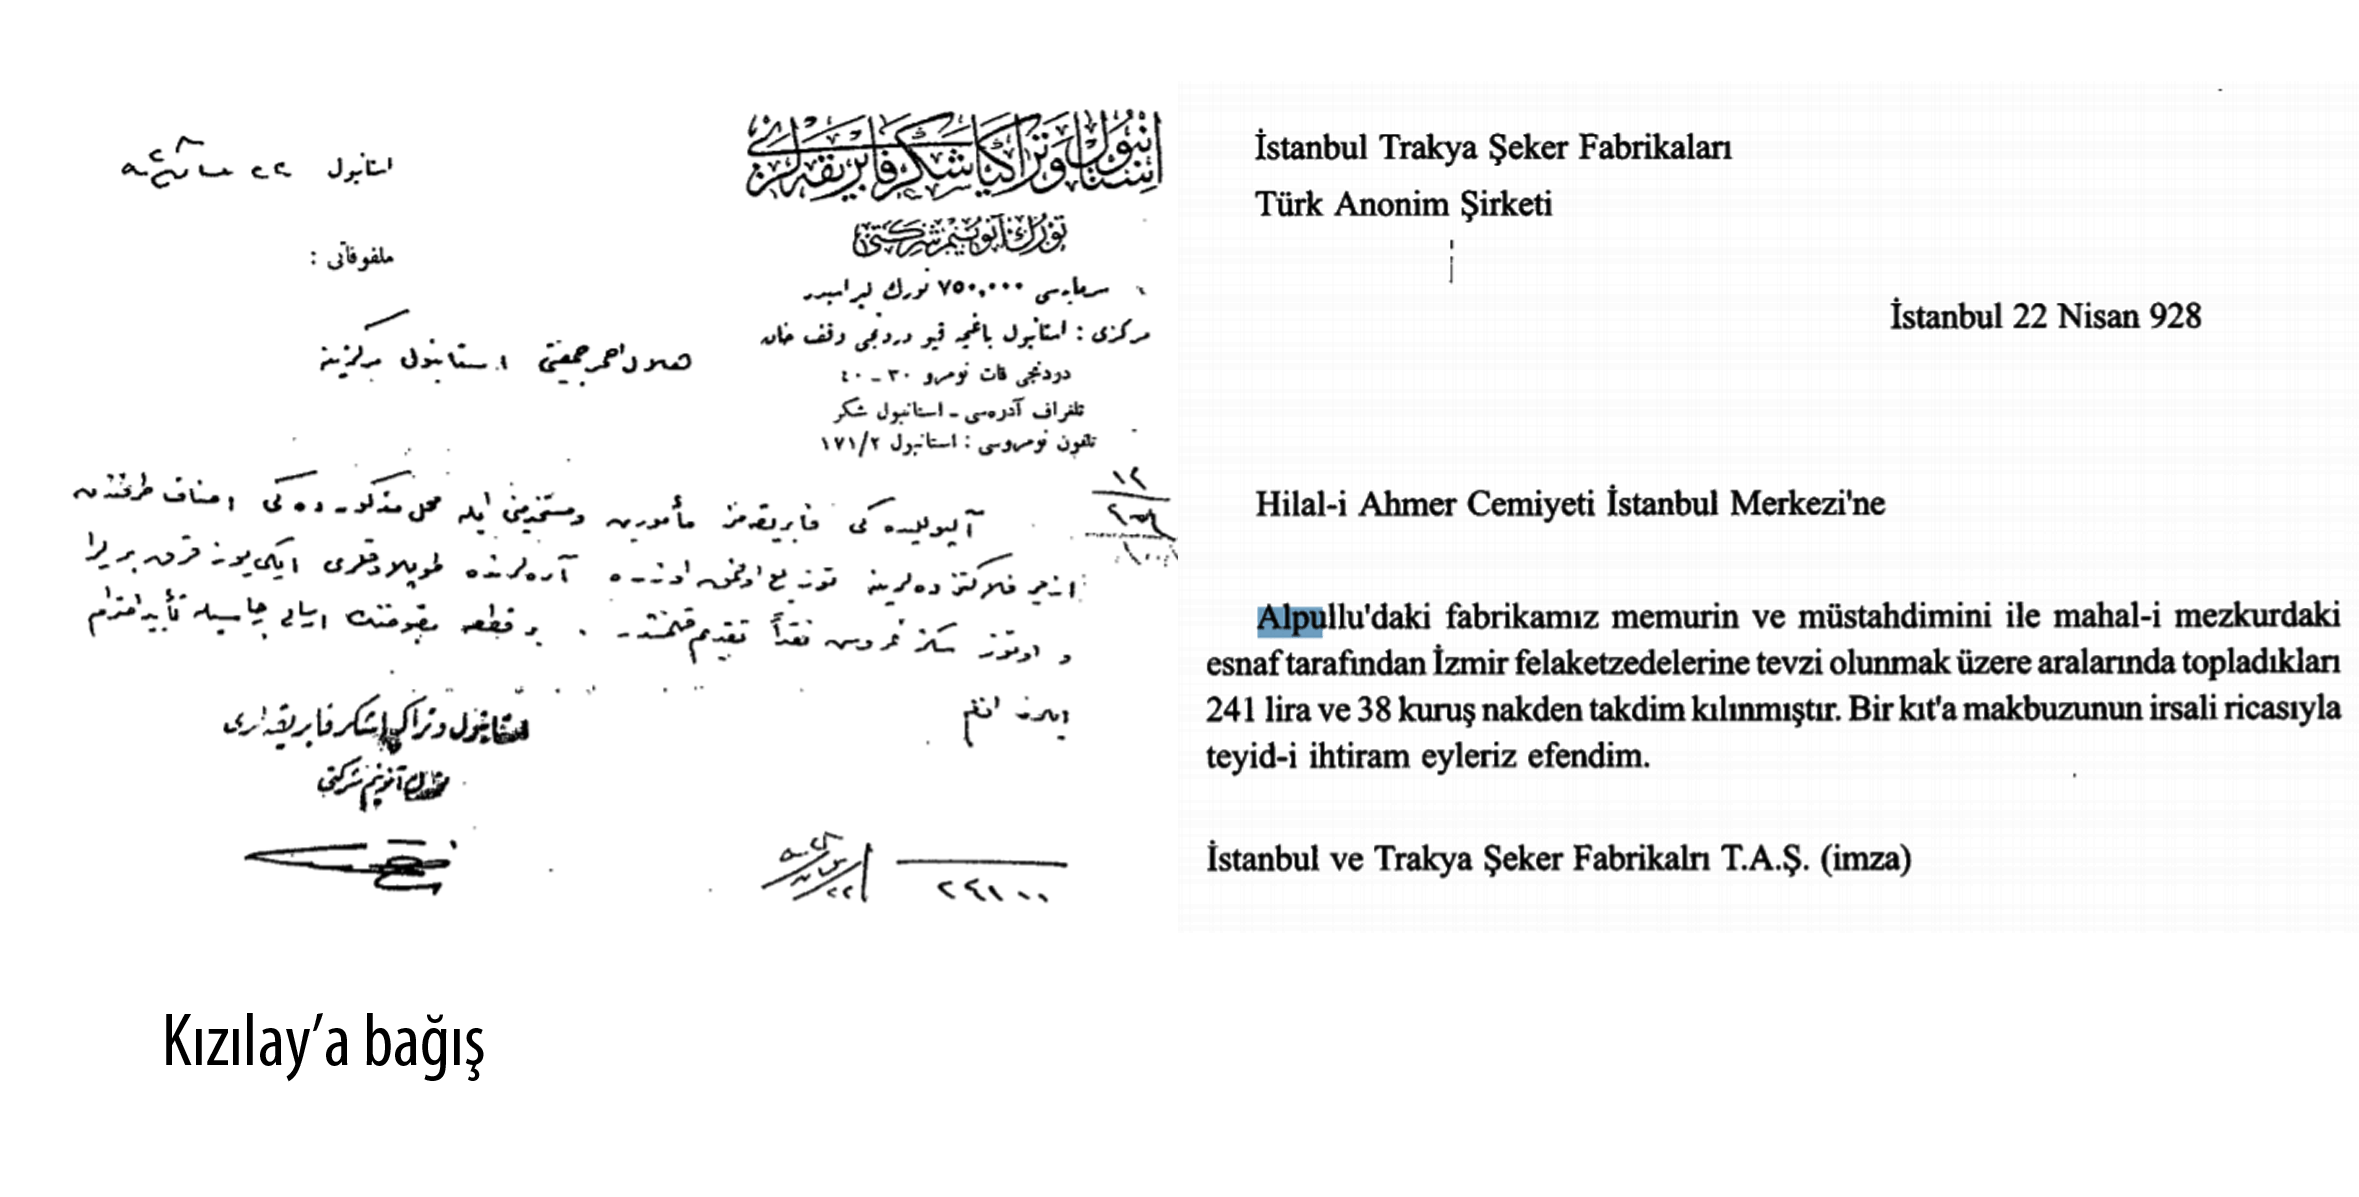 استانبول وتراكيا شكر فابريقه لرى
تورك آنونيم شركتى
سرمايه سى ٧٥٠,٠٠٠ تورك ليراسيدر
مركزى : استانبول باغچه قپو دردنجى وقف خان
دردنجى قات نومرو ٣٠ - ٤٠
تلغراف آدره سى - استانبول شكر
تلفون نومروسى : استانبول ١٧١/٢
استانبول ٢٢ نيسان
ملفوفاتى :
هلال احمر جمعيتى استانبول مركزينه
آلپوليده كى فابريقه مز مأمورين ومستخدمينى ايله محل مذكورده كى اصناف طرفندن
ازمير فلاكتزده لرينه توزيع اولنمق اوزره آره لرنده طوپلادقلرى ايكى يوز قرق بر ليرا
و اوتوز سكز غروش نقداً تقديم قلنمشدر . بر قطعه مقبوضنك ارسالى رجاسيله تأييد احترام
ايلرز افندم
استانبول وتراكيا شكر فابريقه لرى
تورك آنونيم شركتى
٢٤١٠٠
İstanbul Trakya Şeker Fabrikaları
Türk Anonim Şirketi
İstanbul 22 Nisan 928
Hilal-i Ahmer Cemiyeti İstanbul Merkezi'ne
Alpullu'daki fabrikamız memurin ve müstahdimini ile mahal-i mezkurdaki
esnaf tarafından İzmir felaketzedelerine tevzi olunmak üzere aralarında topladıkları
241 lira ve 38 kuruş nakden takdim kılınmıştır. Bir kıt'a makbuzunun irsali ricasıyla
teyid-i ihtiram eyleriz efendim.
İstanbul ve Trakya Şeker Fabrikalrı T.A.Ş. (imza)
Kızılay’a bağış